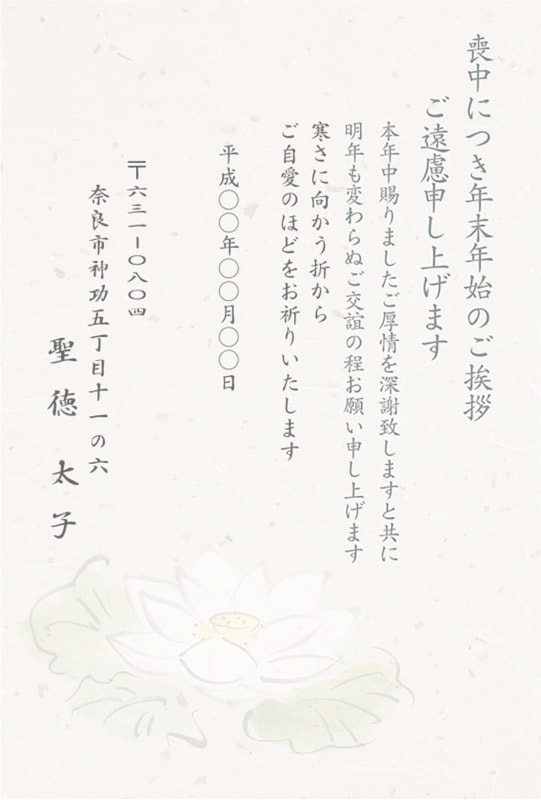 喪中につき年末年始のご挨拶
ご遠慮申し上げます
本年中賜りましたご厚情を深謝致しますと共に
明年も変わらぬご交誼の程お願い申し上げます
寒さに向かう折から
ご自愛のほどをお祈りいたします
平成〇〇年〇〇月〇〇日
〒六三一-〇八〇四
奈良市神功五丁目十一の六
聖徳太子